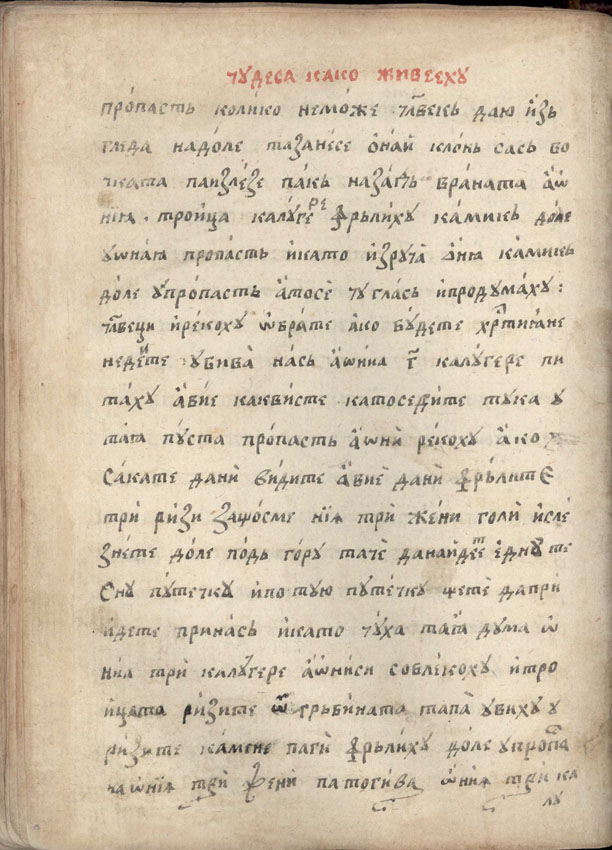 чꙋдеса како живеехꙋ
про́пасть коли́ко немо́же чл҃векь даю и́зь
гл҃ѣда надо́ле тазане́се ѻ́най кло́нь сась бо
чката паизле́зе па́кь наза́ть вра́ната а҆ѡ
нїѧ. тро́ица калꙋ́гере фрь́лихꙋ ка́микь до́ле
ꙋѡна́ю пропа́сть и҆като и҆зрꙋча̀ ѻ́ню ка́микь
до́ле ꙋ҆про́пасть а҆тосѐ чꙋ гла́сь и҆продꙋма́хꙋ:
чл҃веци и҆ре́кохꙋ ѡ҆бра́те а҆ко бꙋ́дете хрⷭ҇тиѧ́не
неде́йте ꙋбива̀ на́сь а҆ѡни́ѧ г҃ калꙋ́гере пи
та́хꙋ а҆вїе какви́сте катоседи́те тꙋка ꙋ
таѧ пꙋ́ста про́пасть а҆ѡнѝ реко́хꙋ а҆ко
са́кате данѝ ви́дите а҆вїѐ данѝ фрь́лите
трѝ ри́зи защо́сме нїѧ трѝ же́ни голѝ и҆слѐ
зне́те до́ле по́дь го́рꙋ тачѐ дана́йдеⷮте е҆днꙋ те
снꙋ пꙋ́течкꙋ и҆по тꙋю пꙋте́чкꙋ щетѐ дапри
и́дете прина́сь и҆като чꙋ́ха таѧ̀ дꙋма ѡ
ниѧ трѝ калꙋ́гере а҆ѡни́си соблѐкохꙋ и҆тро
и́цата ри́зите ѿ грьби́ната тапа̀ ꙋвихꙋ ꙋ
ри́зите ка́мене пагѝ фрь́лихꙋ до́ле ꙋпропⷭ҇а
ча ѡ҆нїѧ трѝ жени патоги́ва ѡ҆ни́ѧ трѝ ка
лꙋ